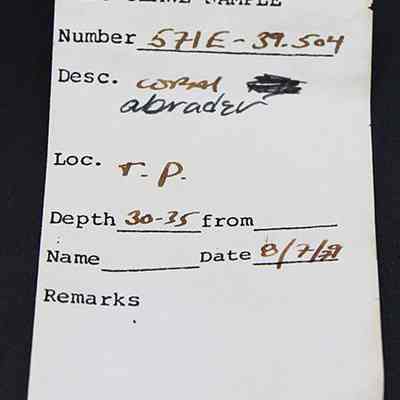 Number 571E-39.504
Desc. coral
abrader
Loc. r.p.
Depth 30-35 from
Name Date 8/7/79
Remarks